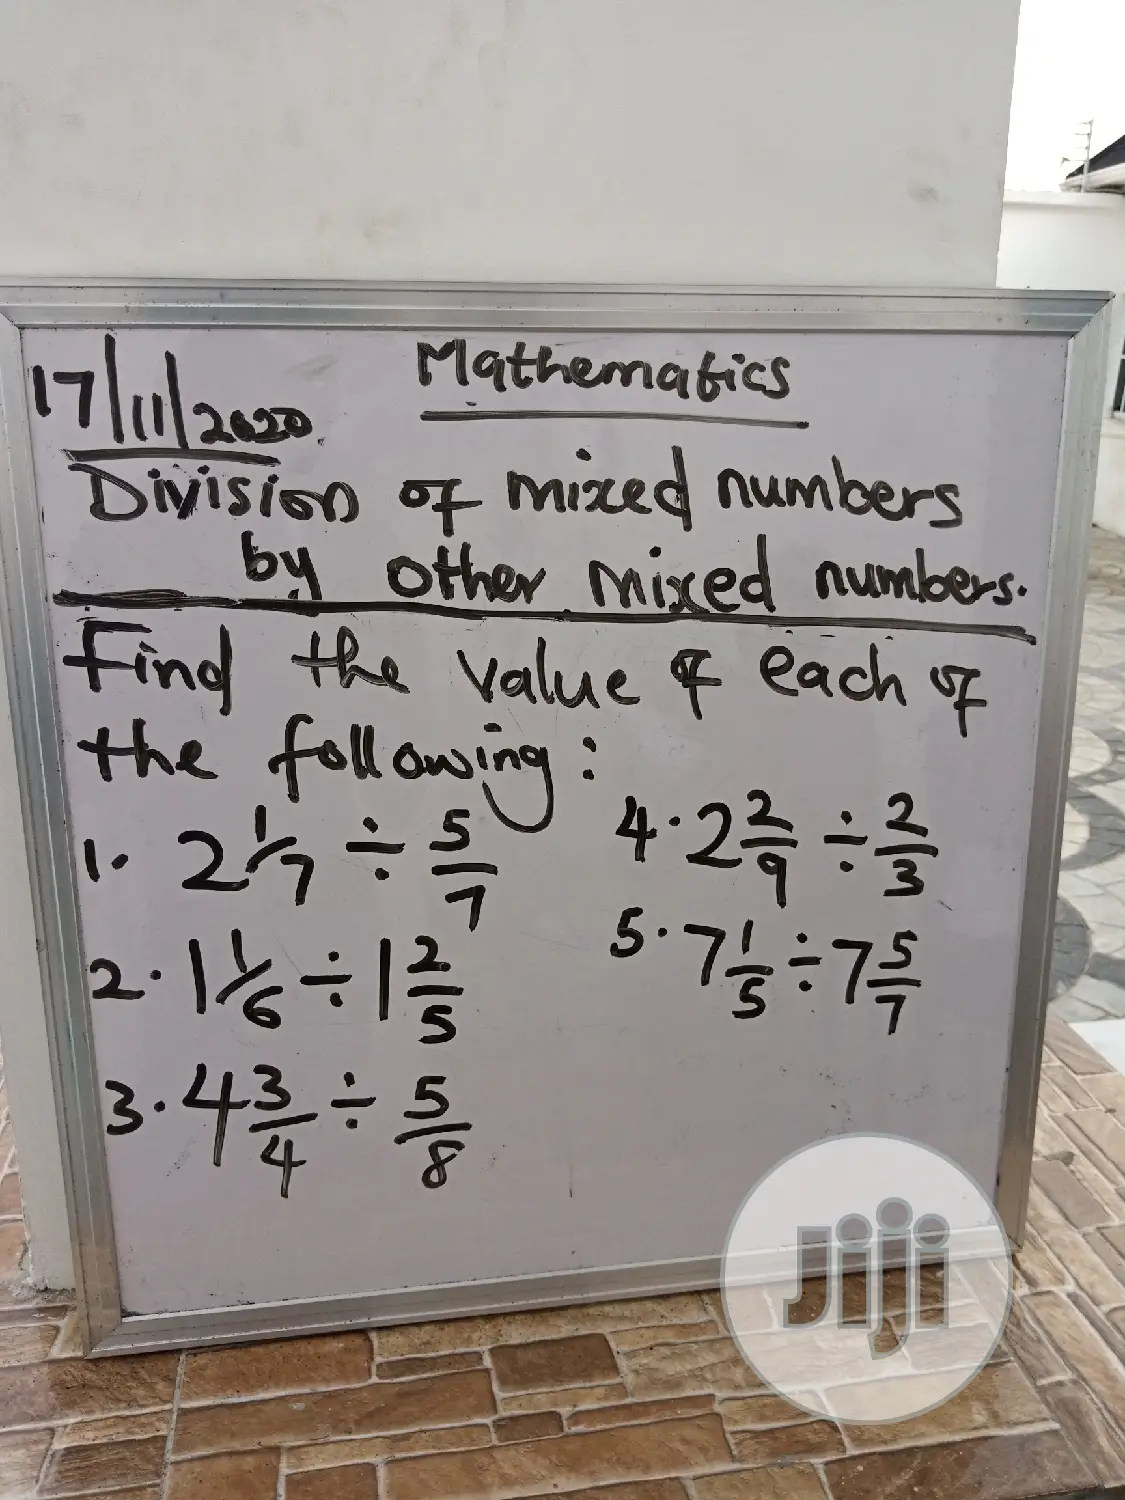 17/11/2020
Mathematics
Division of mixed numbers
by other mixed numbers.
Find the value of each of
the following:
1. 2 1/7 ÷ 5/7
2. 1 1/6 ÷ 1 2/5
3. 4 3/4 ÷ 5/8
4. 2 2/9 ÷ 2/3
5. 7 1/5 ÷ 7 5/7
Jiji